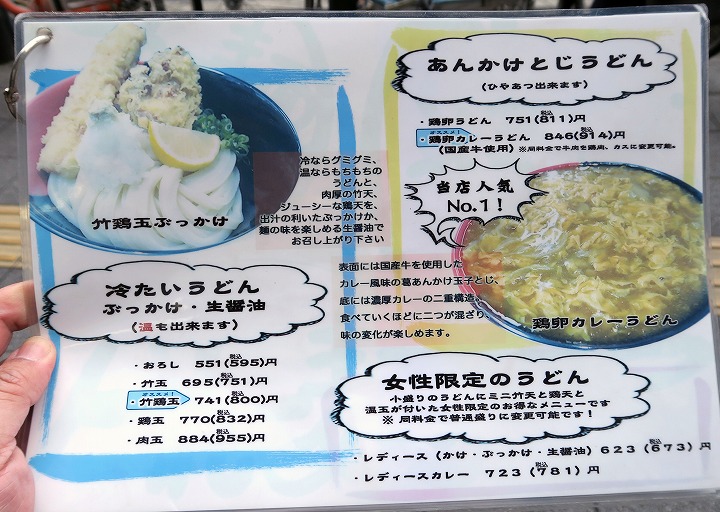 竹鶏玉ぶっかけ
冷ならグミグミ、
温ならもちもちの
うどんと、
肉厚の竹天、
ジューシーな鶏天を、
出汁の利いたぶっかけか、
麺の味を楽しめる生醤油で
お召し上がり下さい
冷たいうどん
ぶっかけ・生醤油
(温も出来ます)
・おろし 551(税込595)円
・竹玉 695(税込751)円
オススメ!
・竹鶏玉 741(税込800)円
・鶏玉 770(税込832)円
・肉玉 884(税込955)円
あんかけとじうどん
(ひやあつ出来ます)
・鶏卵うどん 751(税込811)円
オススメ!
・鶏卵カレーうどん 846(税込914)円
(国産牛使用) ※同料金で牛肉を鶏肉、カスに変更可能。
当店人気
No.1!
鶏卵カレーうどん
表面には国産牛を使用した
カレー風味の葛あんかけ玉子とじ、
底には濃厚カレーの二重構造。
食べていくほどに二つが混ざり、
味の変化が楽しめます。
女性限定のうどん
小盛りのうどんにミニ竹天と鶏天と
温玉が付いた女性限定のお得なメニューです
※ 同料金で普通盛りに変更可能です!
・レディース(かけ・ぶっかけ・生醤油) 623(税込673)円
・レディースカレー 723(税込781)円